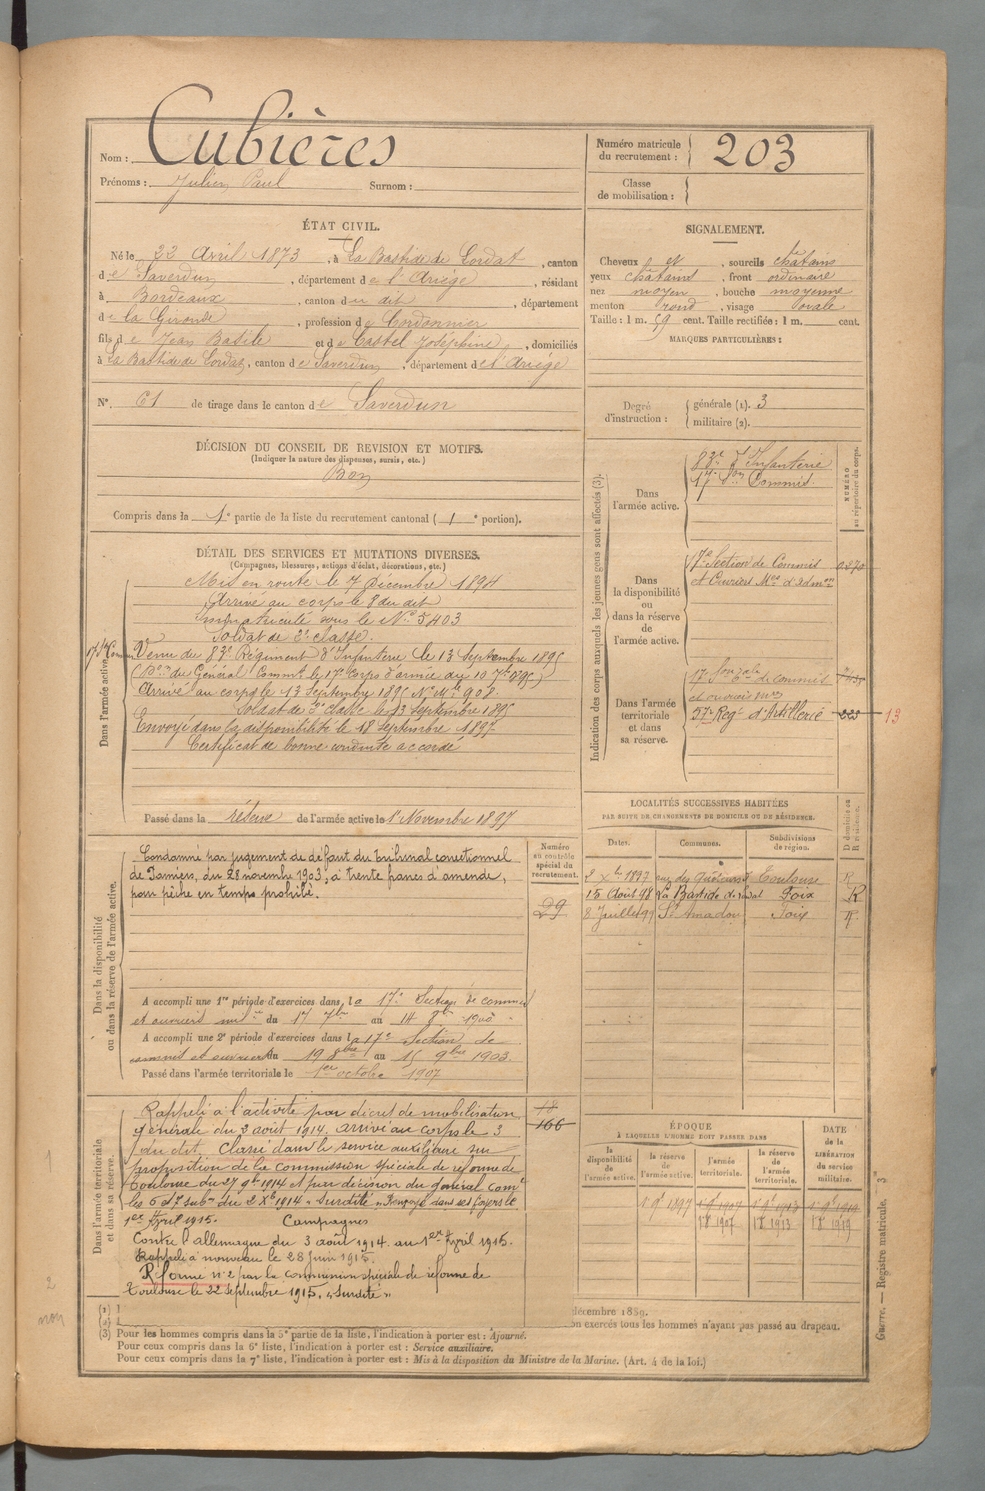 Nom : Cubières
Prénoms : Julien Paul Surnom :
Numéro matricule du recrutement : 203
Classe de mobilisation :
ÉTAT CIVIL.
Né le 22 Avril 1873, à La Bastide de Lordat, canton
de Saverdun, département de l'Ariège, résidant
à Bordeaux, canton du dit, département
de la Gironde, profession de Cordonnier
fils de Jean Basile et de Castel Joséphine, domiciliés
à La Bastide de Lordat, canton de Saverdun, département de l'Ariège
N° 61 de tirage dans le canton de Saverdun
SIGNALEMENT.
Cheveux et, sourcils châtains
yeux châtains, front ordinaire
nez moyen, bouche moyenne
menton rond, visage ovale
Taille : 1 m. 59 cent. Taille rectifiée : 1 m. cent.
MARQUES PARTICULIÈRES :
Degré d'instruction : générale (1). 3
militaire (2).
DÉCISION DU CONSEIL DE REVISION ET MOTIFS.
(Indiquer la nature des dispenses, sursis, etc.)
Bon
Compris dans la 1e partie de la liste du recrutement cantonal (1e portion).
DÉTAIL DES SERVICES ET MUTATIONS DIVERSES.
(Campagnes, blessures, actions d'éclat, décorations, etc.)
Dans l'armée active.
Mis en route le 7 Décembre 1894
Arrivé au corps le 8 du dit
Immatriculé sous le N° 5403
Soldat de 2e classe.
Venu du 83e Régiment d'Infanterie le 13 Septembre 1895
(Don du Général Commt le 17e Corps d'armée du 10 7bre 95)
Arrivé au corps le 13 Septembre 1895 N° Mle 908
Soldat de 2e classe le 13 septembre 1895
Envoyé dans la disponibilité le 18 Septembre 1897
Certificat de bonne conduite accordé
Passé dans la réserve de l'armée active le 1er Novembre 1897
Indication des corps auxquels les jeunes gens sont affectés (3).
NUMÉRO au répertoire du corps.
Dans l'armée active.
83e d'Infanterie
17e Son Commis
Dans la disponibilité ou dans la réserve de l'armée active.
17e Section de Commis
et Ouvriers Mres d'Admon
Dans l'armée territoriale et dans sa réserve.
de commis
et ouvriers Mres
57e Regt d'Artillerie 223 13
LOCALITÉS SUCCESSIVES HABITÉES
PAR SUITE DE CHANGEMENTS DE DOMICILE OU DE RÉSIDENCE.
Dates. Communes. Subdivisions de région. D domicile ou R résidence.
2 Xbre 1897 Toulouse R
15 Août 98 La Bastide de Lordat Foix R
8 Juillet 99 St Amadou Foix R
Dans la disponibilité ou dans la réserve de l'armée active.
Numéro au contrôle spécial du recrutement.
Condamné par jugement de défaut du tribunal correctionnel
de Pamiers, du 28 novembre 1903, à trente francs d'amende,
pour pêche en temps prohibé.
29
A accompli une 1re période d'exercices dans la 17e Section de commis
et ouvriers milres du 17 7bre au 14 8bre 1900
A accompli une 2e période d'exercices dans la 17e Section de
commis et ouvriers du 19 8bre au 15 9bre 1903
Passé dans l'armée territoriale le 1er octobre 1907
Dans l'armée territoriale et dans sa réserve.
166
Rappelé à l'activité par décret de mobilisation
générale du 2 août 1914. arrivé au corps le 3
du dit. Classé dans le service auxiliaire sur
proposition de la Commission spéciale de réforme de
Toulouse du 27 9bre 1914 et par décision du général comt
les 6 et 7 subon du 2 Xbre 1914 "Surdité". Renvoyé dans ses foyers le
1er Avril 1915. Campagnes
Contre l'allemagne du 3 août 1914 au 1er Avril 1915.
Rappelé à nouveau le 28 juin 1915.
Réformé n° 2 par la commission spéciale de réforme de
Toulouse le 22 septembre 1915. "Surdité"
ÉPOQUE
À LAQUELLE L'HOMME DOIT PASSER DANS
la disponibilité de l'armée active. la réserve de l'armée active. l'armée territoriale. la réserve de l'armée territoriale.
DATE de la LIBÉRATION du service militaire.
1 9bre 1897 1 9bre 1907 1 9bre 1913 1 9bre 1919
1 8bre 1907 1 8bre 1913 1 8bre 1919
1
2
non
(1)
décembre 1889.
(2)
on exercés tous les hommes n'ayant pas passé au drapeau.
(3) Pour les hommes compris dans la 5e partie de la liste, l'indication à porter est : Ajourné.
Pour ceux compris dans la 6e liste, l'indication à porter est : Service auxiliaire.
Pour ceux compris dans la 7e liste, l'indication à porter est : Mis à la disposition du Ministre de la Marine. (Art. 4 de la loi.)
Guerre. — Registre matricule.